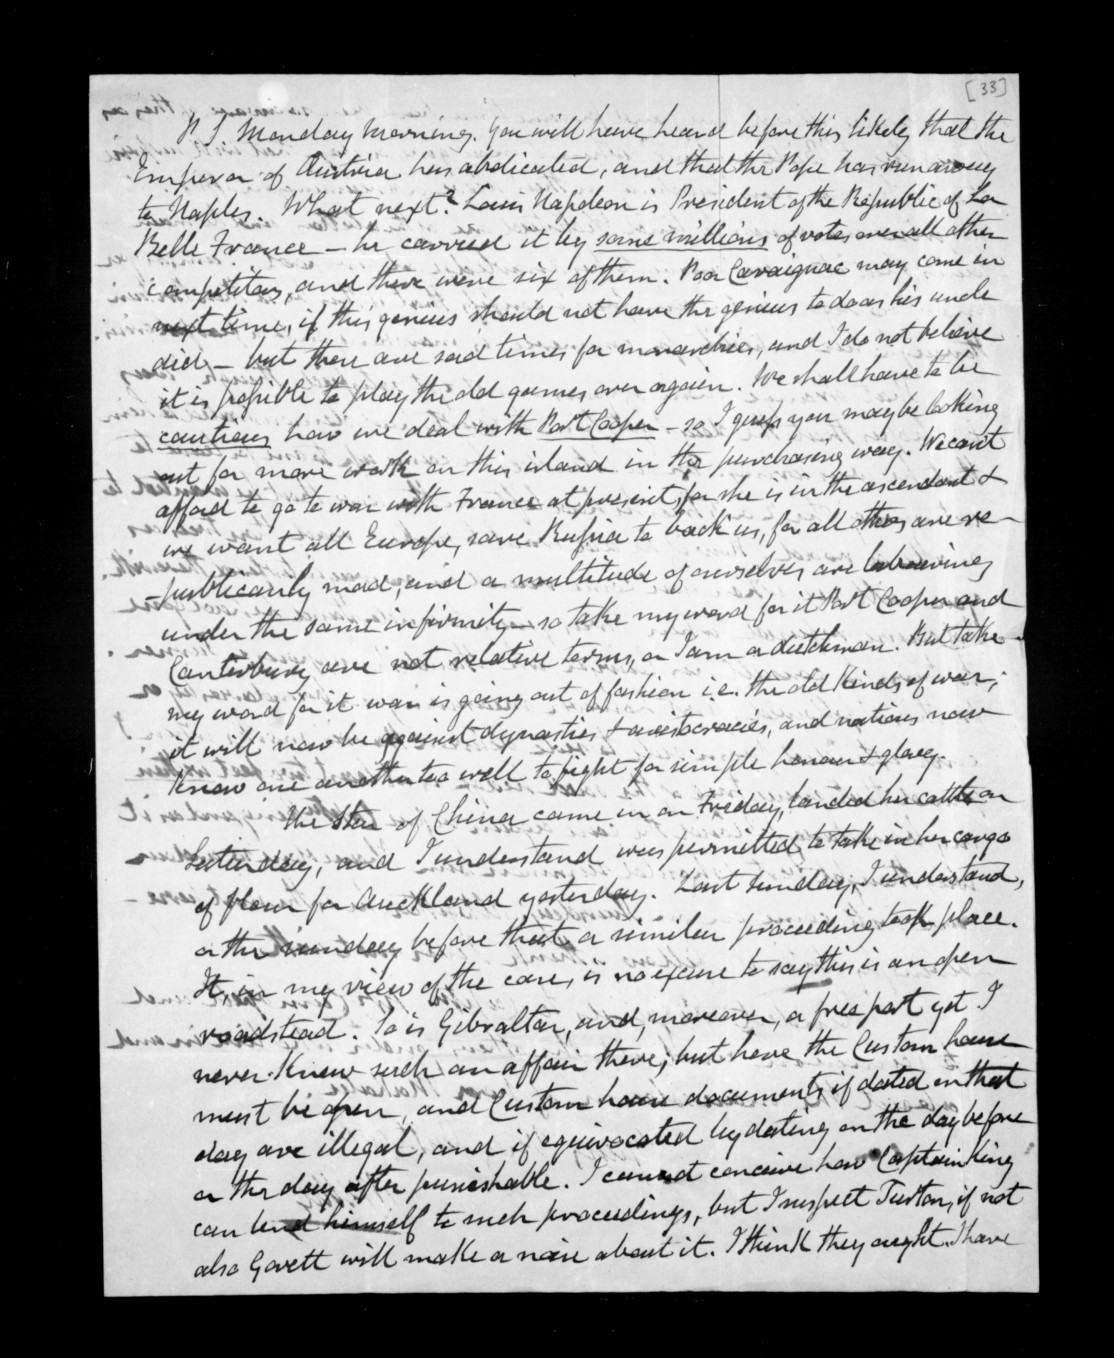 [33]
P. S Monday Morning. You will have heard before this likely that the
Emperor of Austria has abdicated, and that the Pope has run away
to Naples. What next? Louis Napoleon is President of the Republic of La
Belle France — he carried it by some millions of votes over all other
competitors, and there were six of them. Poor Cavaignac may come in
next time, if this genius should not have the genius to do as his uncle
did — but there are sad times for monarchies, and I do not believe
it is possible to play the old games over again. We shall have to be
cautious how we deal with Port Cooper — so I guess you may be looking
out for more work on this island in the purchasing way. We can't
afford to go to war with France at present, for she is in the ascendant &
we want all Europe, save Russia to back us, for all others are re-
-publicanly mad, and a multitude of ourselves are labouring
under the same infirmity — so take my word for it Port Cooper and
Canterbury are not relative terms, or I am a dutchman. But take
my word for it war is going out of fashion i.e. the old kinds of war;
it will now be against dynasties & aristocracies, and nations now
know one another too well to fight for simple honour & glory.
The Star of China came in on Friday, landed her cattle on
Saturday, and I understand was permitted to take in her cargo
of flour for Auckland yesterday. Last Sunday, I understand,
or the sunday before that a similar proceeding took place.
It, in my view of the case, is no excuse to say this is an open
roadstead. So is Gibraltar, and, moreover, a free port yet I
never knew such an affair there; but here the Custom house
must be open, and Custom house documents if dated on that
day are illegal, and if equivocated by dating on the day before
or the day after punishable. I cannot conceive how Captain King
can lend himself to such proceedings, but I suspect Turton, if not
also Govett will make a noise about it. I think they ought. I have